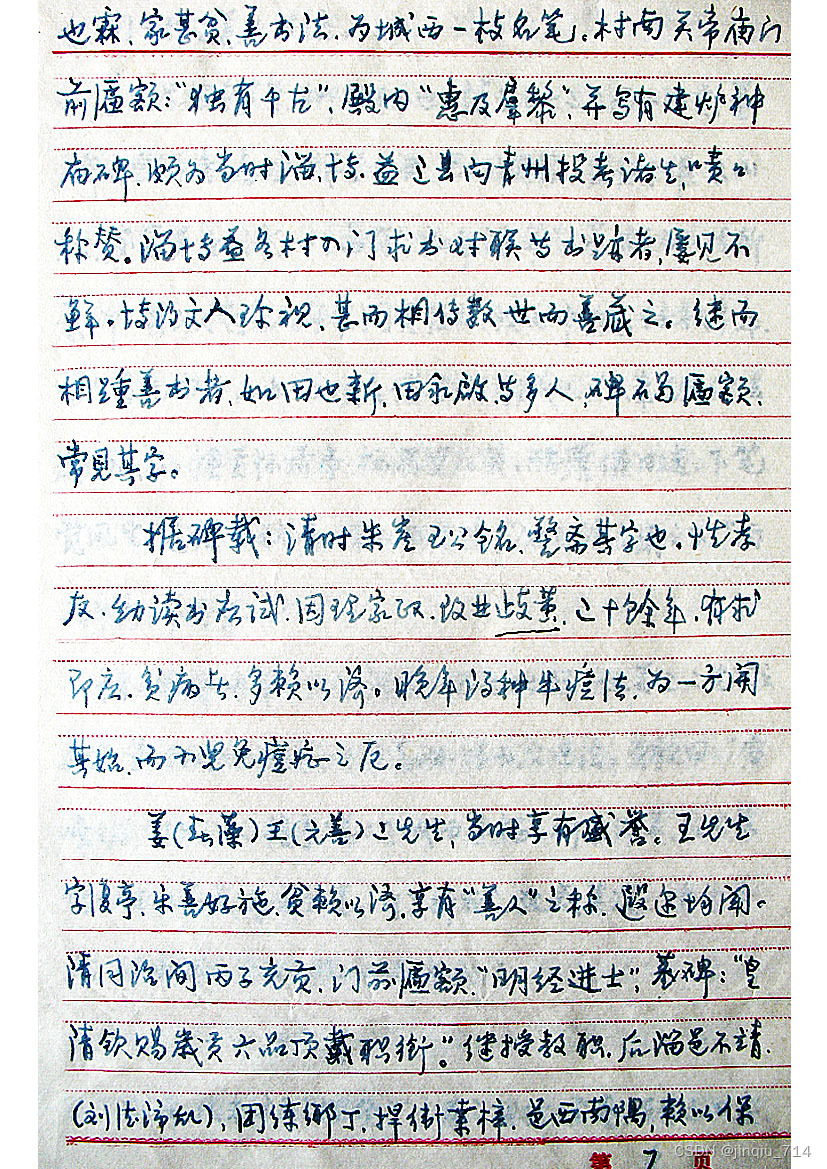 也霖、家甚贫、善书法、为城西一枝名笔。村南关帝庙门
前匾额："独有千古"、殿内"惠及羣黎"、并写有建炉神
庙碑、颇为当时淄、博、益三县向青州投考诸生、啧々
称赞。淄博益各村入门求书对联与书跡者，屡见不
鲜。博的文人珍视、甚而相传数世而善藏之。继而
相踵善书者、如田也新、田永啟与多人、碑石匾额、
常见其字。
据碑载：清时朱崖王公铭、警斋其字也。性孝
友、幼读书应试、因家政、改业岐黄、三十馀年、有求
即应、贫病者、多赖以济。晚年得种牛痘法、为一方开
其始、而小児免痘症之厄。
姜(春藻)王(元善)二先生，当时享有盛誉。王先生
字复亭、乐善好施、贫赖以济、享有"善人"之称、遐迩均闻。
清同治间丙子充贡、门前匾额、"明经进士"；墓碑："皇
清钦赐岁贡六品顶戴职衔"。继授教职、后淄邑不靖、
(刘德沛乱)，团练乡丁、捍衛桑梓、邑西南隅，赖以保
第 7 页
CSDN @jinqiu_714